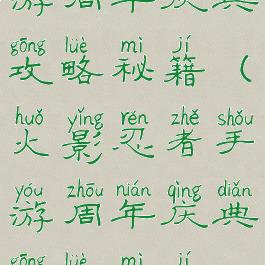 游周年庆典
gōng lüè mì jí
攻略秘籍（
huǒ yǐng rěn zhě shǒu
火影忍者手
yóu zhōu nián qìng diǎn
游周年庆典
gōng lüè mì jí